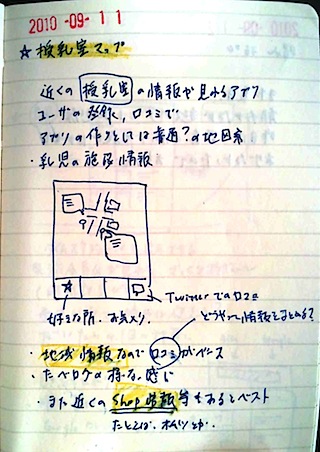 2010 -09- 11
☆ 授乳室マップ
近くの 授乳室 の情報が見れるアプリ
ユーザの登録、口コミで
アプリの作りとしては普通?の地図系
・乳児の施設情報
Twitterでの口コミ
好きな所、お気に入り
どうやって情報をまとめる?
・地域情報なので 口コミ がベース
・たべログの様な感じ
・また近くの Shop情報等もあるとベスト
たとえば、オムツとか.